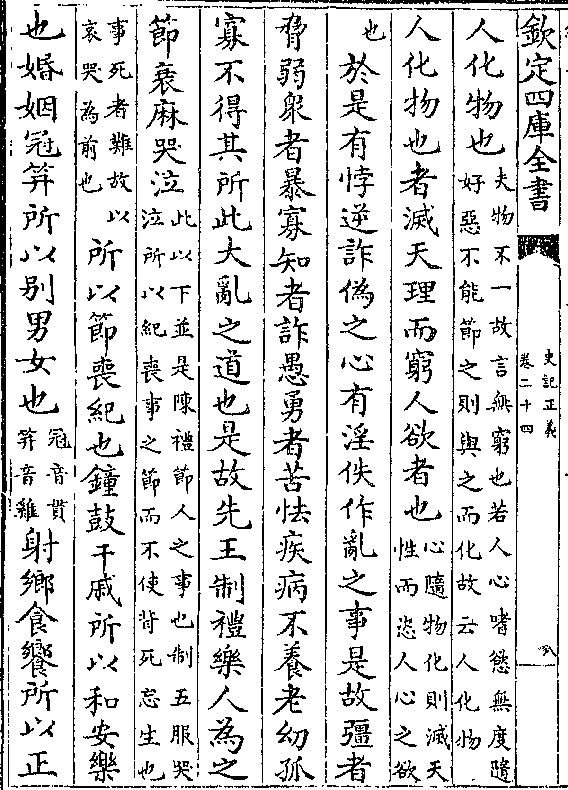 欽定四庫全書
史記正義
卷二十四
八
人化物也夫物不一故言無窮也若人心嗜慾無度隨
好惡不能節之則與之而化故云人化物
人化物也者滅天理而窮人欲者也心隨物化則滅天
性而恣人心之欲
也於是有悖逆詐偽之心有淫佚作亂之事是故彊者
脅弱衆者暴寡知者詐愚勇者苦怯疾病不養老幼孤
寡不得其所此大亂之道也是故先王制禮樂人為之
節衰麻哭泣此以下並是陳禮節人之事也制五服哭
泣所以紀喪事之節而不使背死忘生也
事死者難故以
哀哭為前也
所以節喪紀也鐘鼓干戚所以和安樂
也婚姻冠笄所以別男女也冠音貫
笄音雞
射鄉食饗所以正